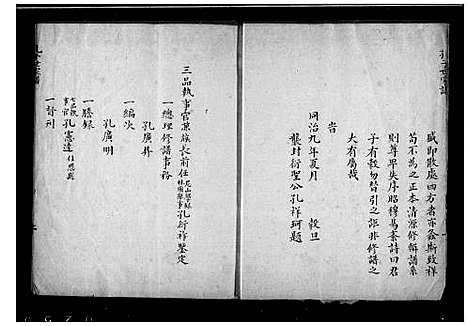 賦即散處四方者亦螽斯致祥
苟不為之正本清源修輯譜系
則尊卑失序昭穆易紊詩曰君
子有穀勿替引之詎非修譜之
大有厲哉
旹
同治九年夏月 穀旦
襲封衍聖公孔祥珂題
三品執事官兼族長前任 孔衍祥鑒定
一總理修譜事務
孔廣昇
一編次
孔廣明
一謄錄
孔憲達
一督刊